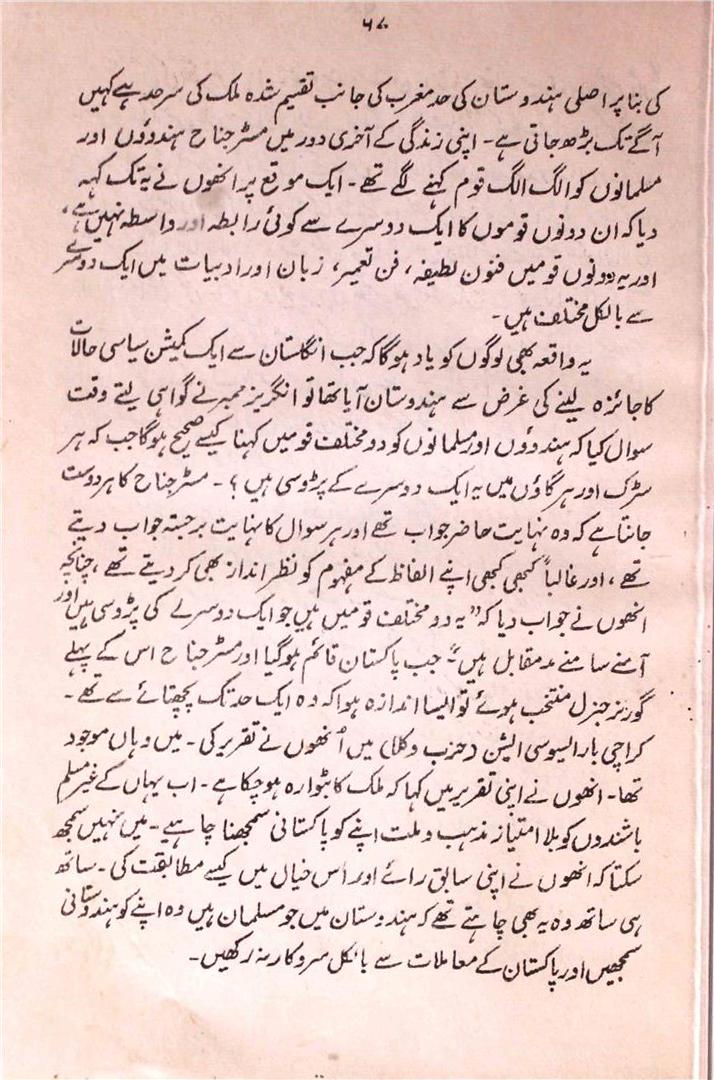 ۶۸
کی بنا پر اصلی ہندوستان کی حد مغرب کی جانب تقسیم شدہ ملک کی سرحد سے کہیں
آگے تک بڑھ جاتی ہے۔ اپنی زندگی کے آخری دور میں مسٹر جناح ہندوؤں اور
مسلمانوں کو الگ الگ قوم کہنے لگے تھے۔ ایک موقع پر انھوں نے یہ تک کہہ
دیا کہ ان دونوں قوموں کا ایک دوسرے سے کوئی رابطہ اور واسطہ نہیں ہے،
اور یہ دونوں قومیں فنون لطیفہ، فن تعمیر، زبان اور ادبیات میں ایک دوسرے
سے بالکل مختلف ہیں۔
یہ واقعہ بھی لوگوں کو یاد ہوگا کہ جب انگلستان سے ایک کمیشن سیاسی حالات
کا جائزہ لینے کی غرض سے ہندوستان آیا تھا تو انگریز ممبر نے گواہی لیتے وقت
سوال کیا کہ ہندوؤں اور مسلمانوں کو دو مختلف قومیں کہنا کیسے صحیح ہوگا جب کہ ہر
سڑک اور ہر گاؤں میں یہ ایک دوسرے کے پڑوسی ہیں؟۔ مسٹر جناح کا ہر دوست
جانتا ہے کہ وہ نہایت حاضر جواب تھے اور ہر سوال کا نہایت برجستہ جواب دیتے
تھے، اور غالباً کبھی کبھی اپنے الفاظ کے مفہوم کو نظر انداز بھی کر دیتے تھے، چنانچہ
انھوں نے جواب دیا کہ "یہ دو مختلف قومیں ہیں جو ایک دوسرے کی پڑوسی ہیں اور
آمنے سامنے مدمقابل ہیں"۔ جب پاکستان قائم ہوگیا اور مسٹر جناح اس کے پہلے
گورنر جنرل منتخب ہوئے تو ایسا اندازہ ہوا کہ وہ ایک حد تک پچھتائے سے تھے۔
کراچی بار ایسوسی ایشن (حزب وکلا) میں اُنھوں نے تقریر کی۔ میں وہاں موجود
تھا۔ انھوں نے اپنی تقریر میں کہا کہ ملک کا بٹوارہ ہوچکا ہے۔ اب یہاں کے غیر مسلم
باشندوں کو بلا امتیاز مذہب و ملت اپنے کو پاکستانی سمجھنا چاہیے۔ میں نہیں سمجھ
سکتا کہ انھوں نے اپنی سابق رائے اور اُس خیال میں کیسے مطابقت کی۔ ساتھ
ہی ساتھ وہ یہ بھی چاہتے تھے کہ ہندوستان میں جو مسلمان ہیں وہ اپنے کو ہندوستانی
سمجھیں اور پاکستان کے معاملات سے بالکل سروکار نہ رکھیں۔